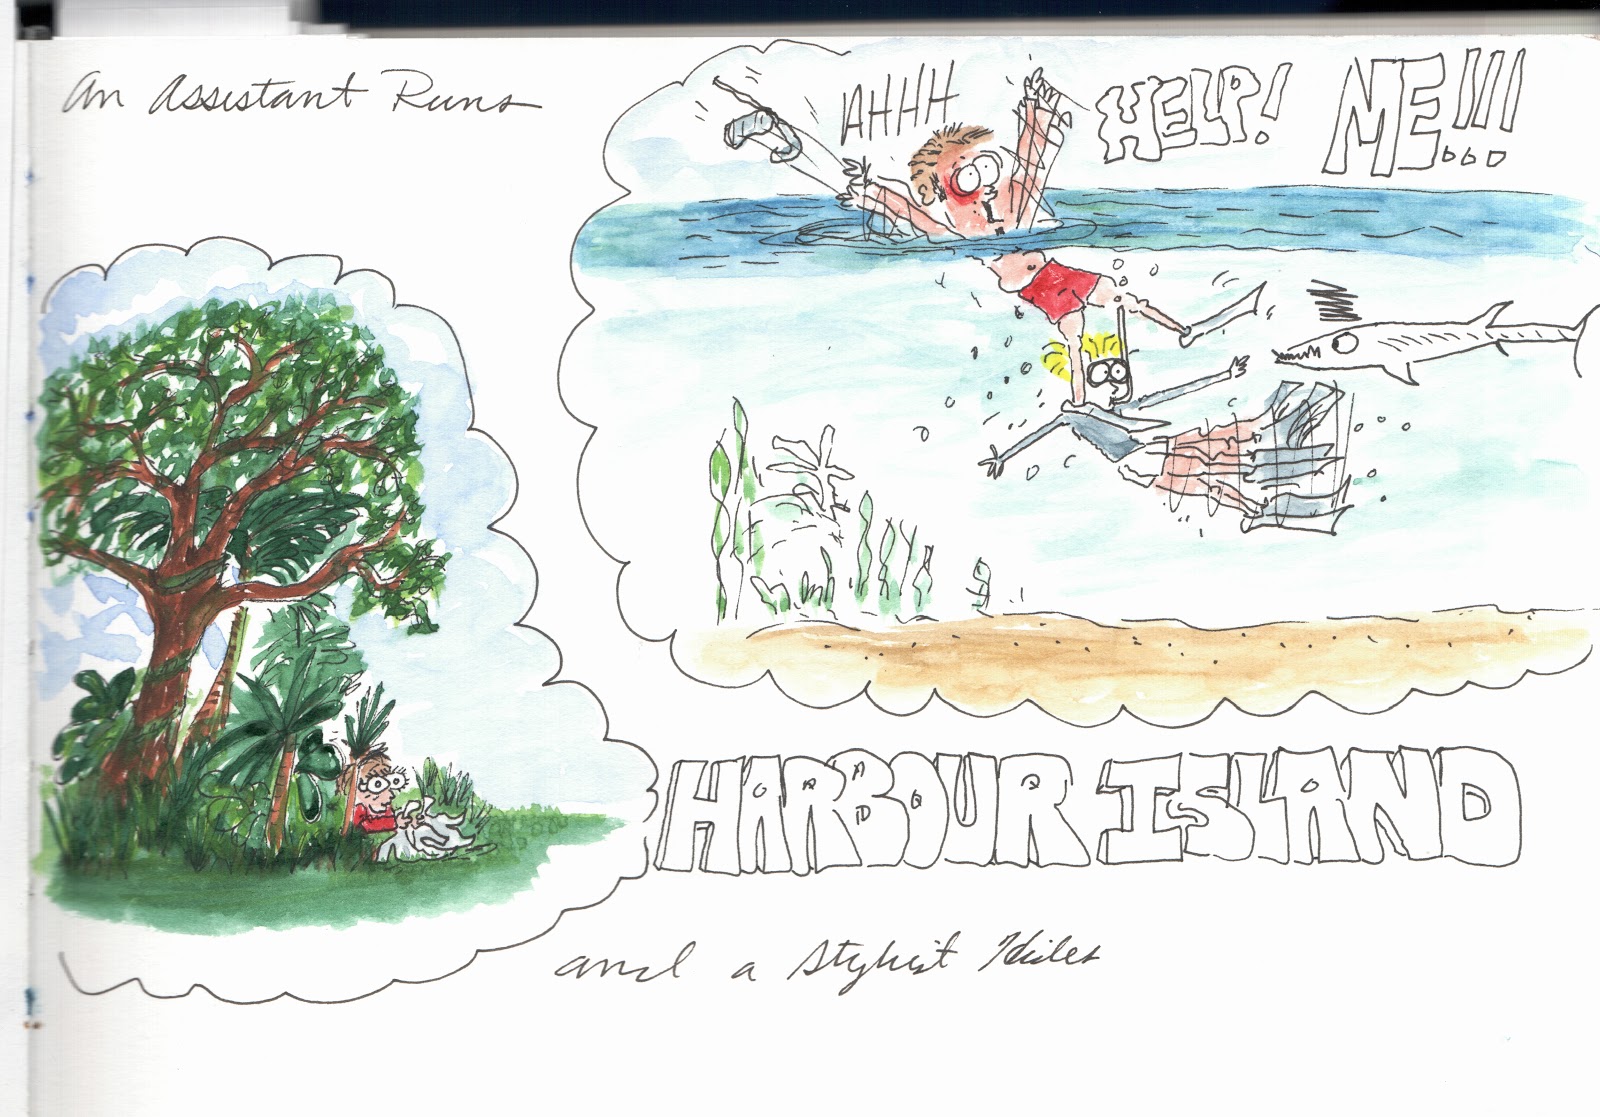 An Assistant Runs
AHHH HELP! ME!!!
HARBOUR ISLAND
and a Stylist Hides